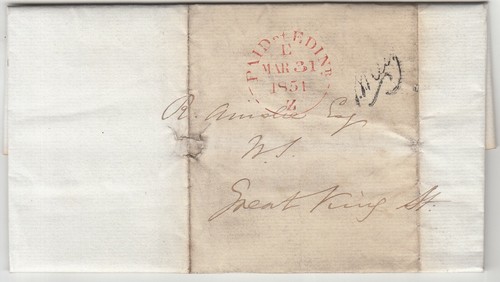 PAID AT EDINR
E
MAR 31
1851
Z
R. Ainslie Esq
W.S.
Great King St.